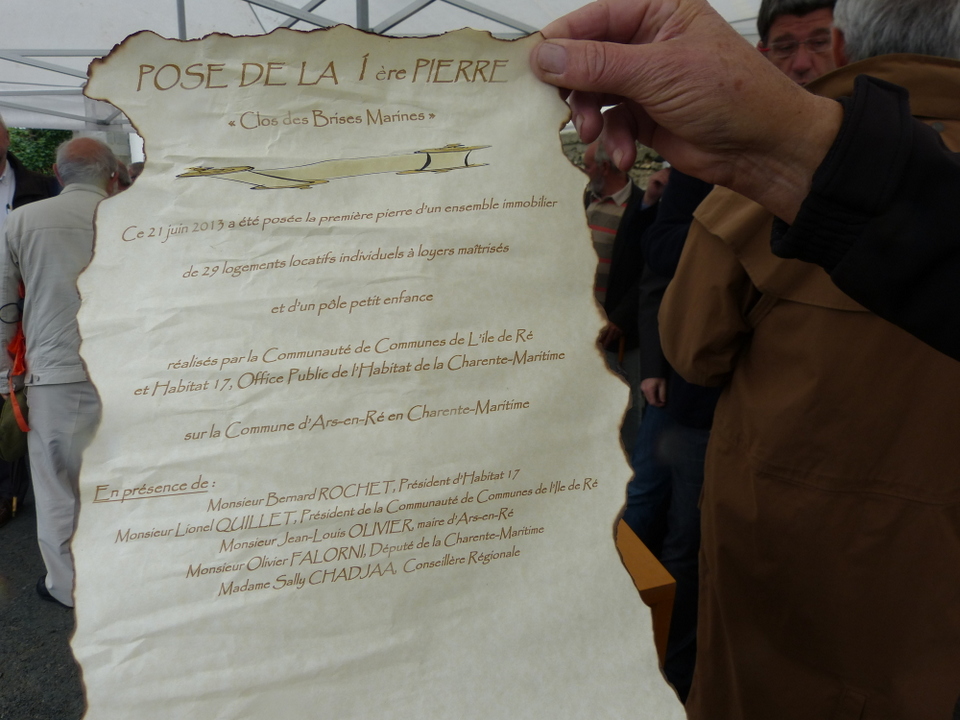 POSE DE LA 1 ère PIERRE
« Clos des Brises Marines »
Ce 21 juin 2013 a été posée la première pierre d'un ensemble immobilier
de 29 logements locatifs individuels à loyers maîtrisés
et d'un pôle petit enfance
réalisés par la Communauté de Communes de L'ile de Ré
et Habitat 17, Office Public de l'Habitat de la Charente-Maritime
sur la Commune d'Ars-en-Ré en Charente-Maritime
En présence de :
Monsieur Bernard ROCHET, Président d'Habitat 17
Monsieur Lionel QUILLET, Président de la Communauté de Communes de l'Ile de Ré
Monsieur Jean-Louis OLIVIER, maire d'Ars-en-Ré
Monsieur Olivier FALORNI, Député de la Charente-Maritime
Madame Sally CHADJAA, Conseillère Régionale